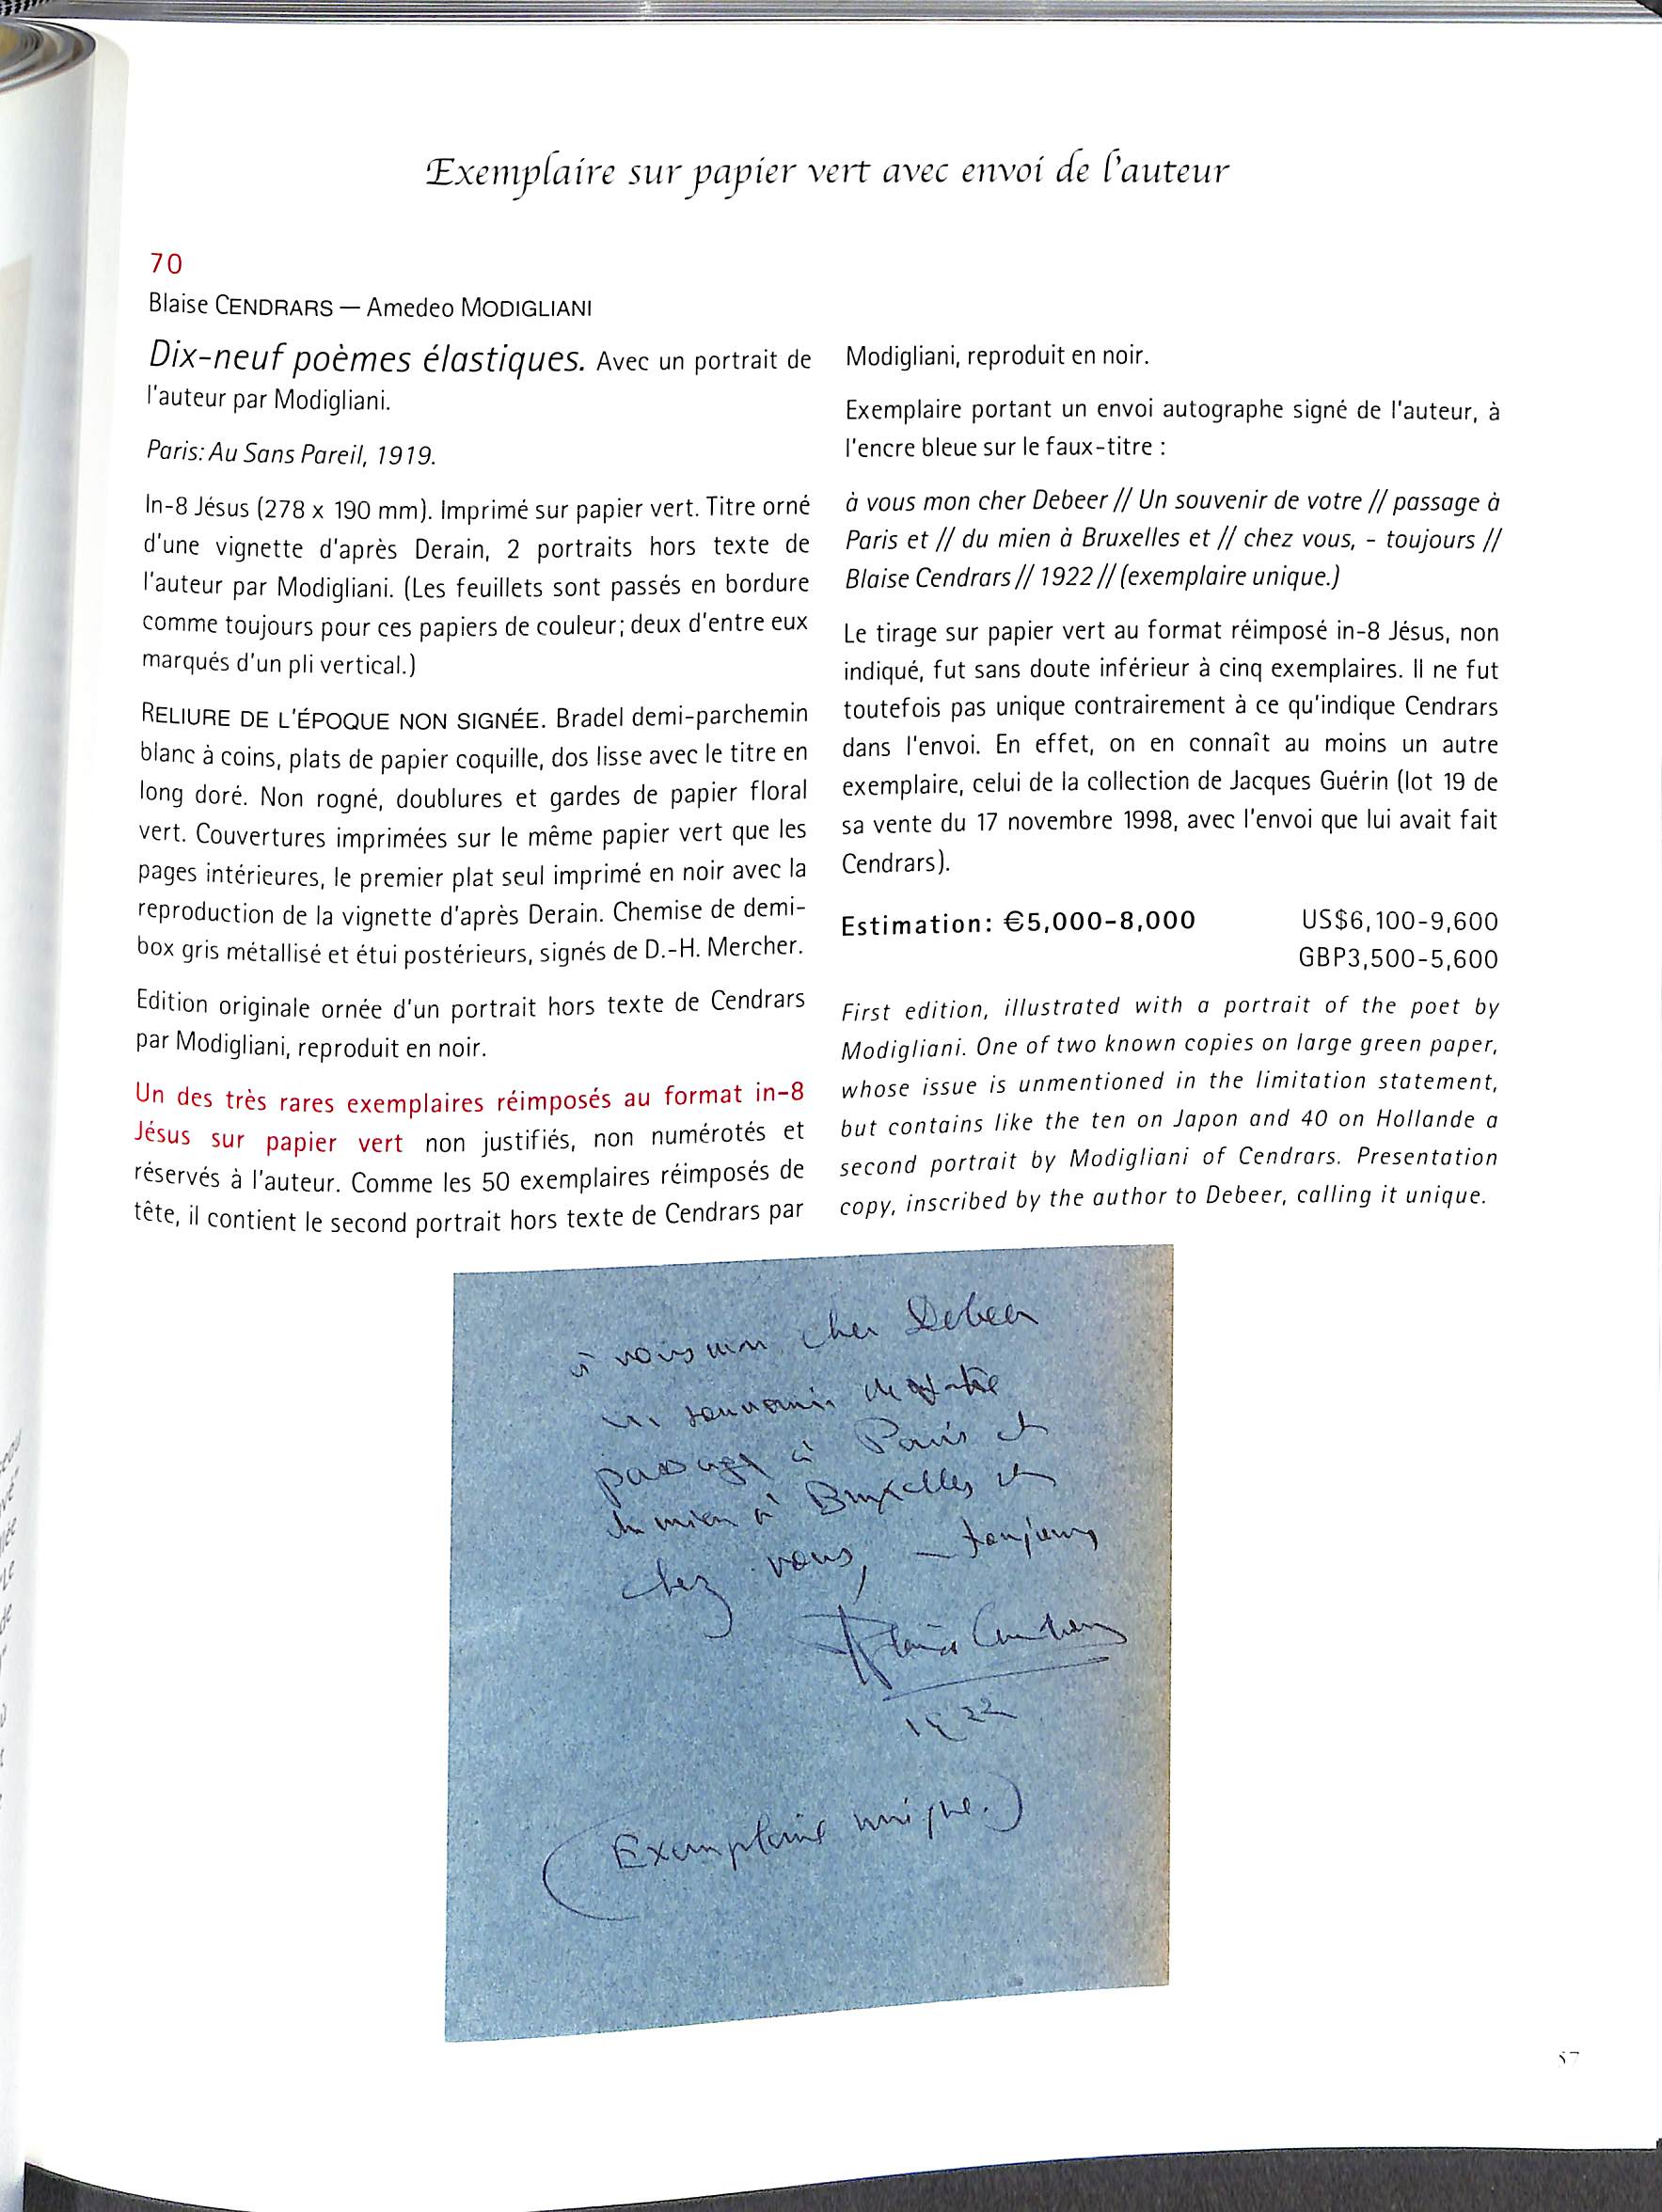 Exemplaire sur papier vert avec envoi de l'auteur
70
Blaise CENDRARS — Amedeo MODIGLIANI
Dix-neuf poèmes élastiques. Avec un portrait de
l'auteur par Modigliani.
Paris: Au Sans Pareil, 1919.
In-8 Jésus (278 x 190 mm). Imprimé sur papier vert. Titre orné
d'une vignette d'après Derain, 2 portraits hors texte de
l'auteur par Modigliani. (Les feuillets sont passés en bordure
comme toujours pour ces papiers de couleur; deux d'entre eux
marqués d'un pli vertical.)
RELIURE DE L'ÉPOQUE NON SIGNÉE. Bradel demi-parchemin
blanc à coins, plats de papier coquille, dos lisse avec le titre en
long doré. Non rogné, doublures et gardes de papier floral
vert. Couvertures imprimées sur le même papier vert que les
pages intérieures, le premier plat seul imprimé en noir avec la
reproduction de la vignette d'après Derain. Chemise de demi-
box gris métallisé et étui postérieurs, signés de D.-H. Mercher.
Edition originale ornée d'un portrait hors texte de Cendrars
par Modigliani, reproduit en noir.
Un des très rares exemplaires réimposés au format in-8
Jésus sur papier vert non justifiés, non numérotés et
réservés à l'auteur. Comme les 50 exemplaires réimposés de
tête, il contient le second portrait hors texte de Cendrars par
Modigliani, reproduit en noir.
Exemplaire portant un envoi autographe signé de l'auteur, à
l'encre bleue sur le faux-titre :
à vous mon cher Debeer // Un souvenir de votre // passage à
Paris et // du mien à Bruxelles et // chez vous, - toujours //
Blaise Cendrars // 1922 // (exemplaire unique.)
Le tirage sur papier vert au format réimposé in-8 Jésus, non
indiqué, fut sans doute inférieur à cinq exemplaires. Il ne fut
toutefois pas unique contrairement à ce qu'indique Cendrars
dans l'envoi. En effet, on en connaît au moins un autre
exemplaire, celui de la collection de Jacques Guérin (lot 19 de
sa vente du 17 novembre 1998, avec l'envoi que lui avait fait
Cendrars).
Estimation: €5,000-8,000 US$6,100-9,600
GBP3,500-5,600
First edition, illustrated with a portrait of the poet by
Modigliani. One of two known copies on large green paper,
whose issue is unmentioned in the limitation statement,
but contains like the ten on Japon and 40 on Hollande a
second portrait by Modigliani of Cendrars. Presentation
copy, inscribed by the author to Debeer, calling it unique.
à vous mon cher Debeer
un souvenir de votre
passage à Paris et
du mien à Bruxelles et
chez vous, – toujours
Blaise Cendrars
1922
(Exemplaire unique.)
57